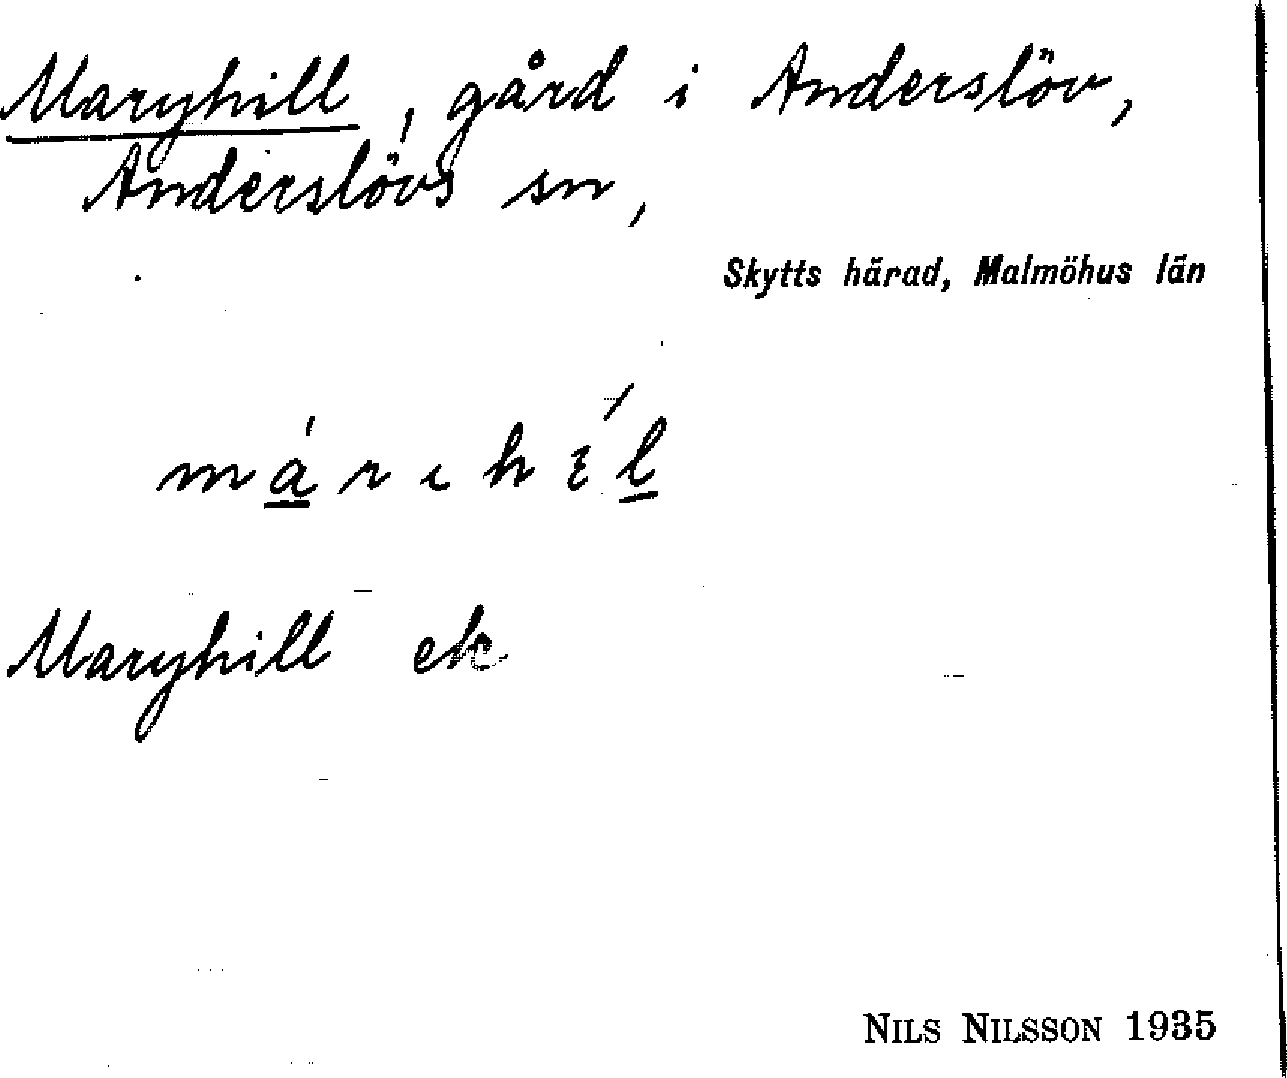 Maryhill, gård i Anderslöv,
Anderslövs sn,
Skytts härad, Malmöhus län
Maryhill ek
NILS NILSSON 1935